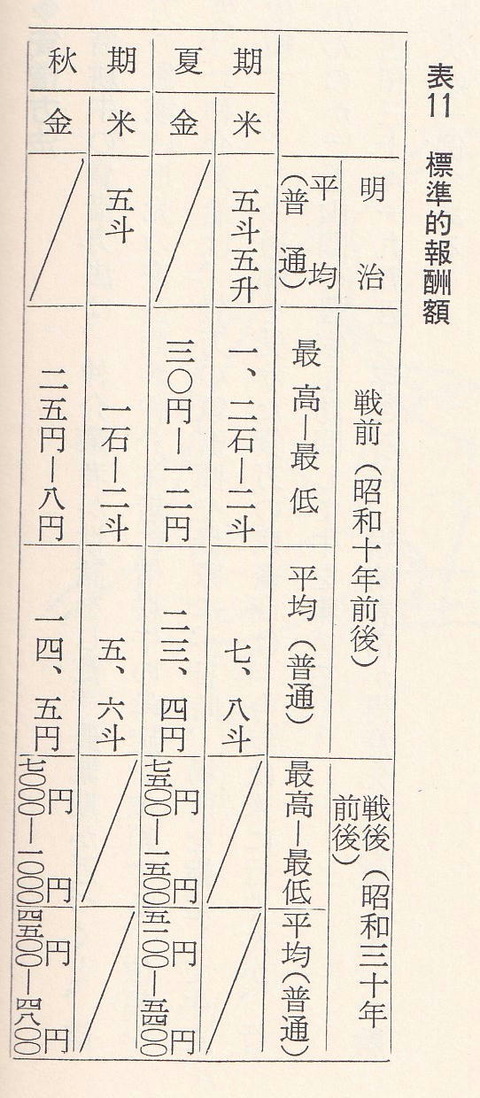 表11 標準的報酬額
明治
平均(普通)
戦前(昭和十年前後)
最高―最低
平均(普通)
戦後(昭和三十年前後)
最高―最低
平均(普通)
夏期
米
五斗五升
一、二石―二斗
七、八斗
金
三〇円―一二円
二三、四円
七五〇〇円―一五〇〇円
五一〇〇円―五四〇〇円
秋期
米
五斗
一石―二斗
五、六斗
金
二五円―八円
一四、五円
七〇〇〇円―一〇〇〇円
四五〇〇円―四八〇〇円